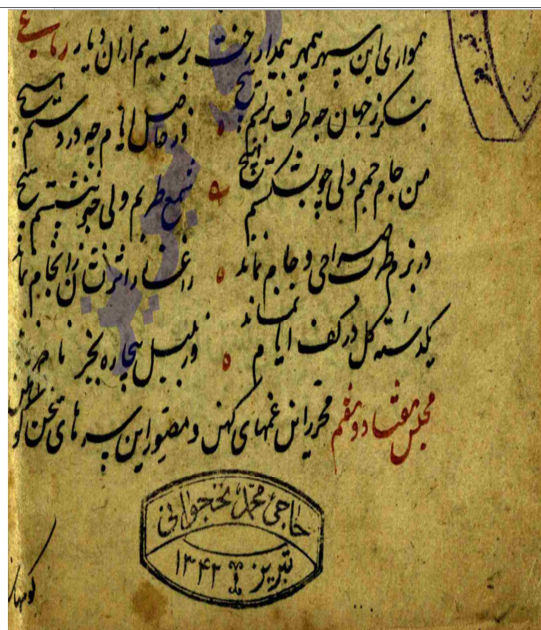 همواری این سپهر بیمدار رخت بر بسته هم از آن دیار رباعی
بنگر ز جهان چه طرف بربستم هیچ وز حاصل ایام چه در دستم هیچ
من جام جمم ولی چو بشکستم هیچ شمع طربم ولی چو بنشستم هیچ
در بزم طرب صراحی و جام نماند
یکدسته گل در کف ایام نماند وز بلبل بیچاره بجز نام
مجلس هفتاد و هفتم محرر این غمهای کهن و مصور این سخن
حاجی محمد نخجوانی
تبریز ۱۳۴۲